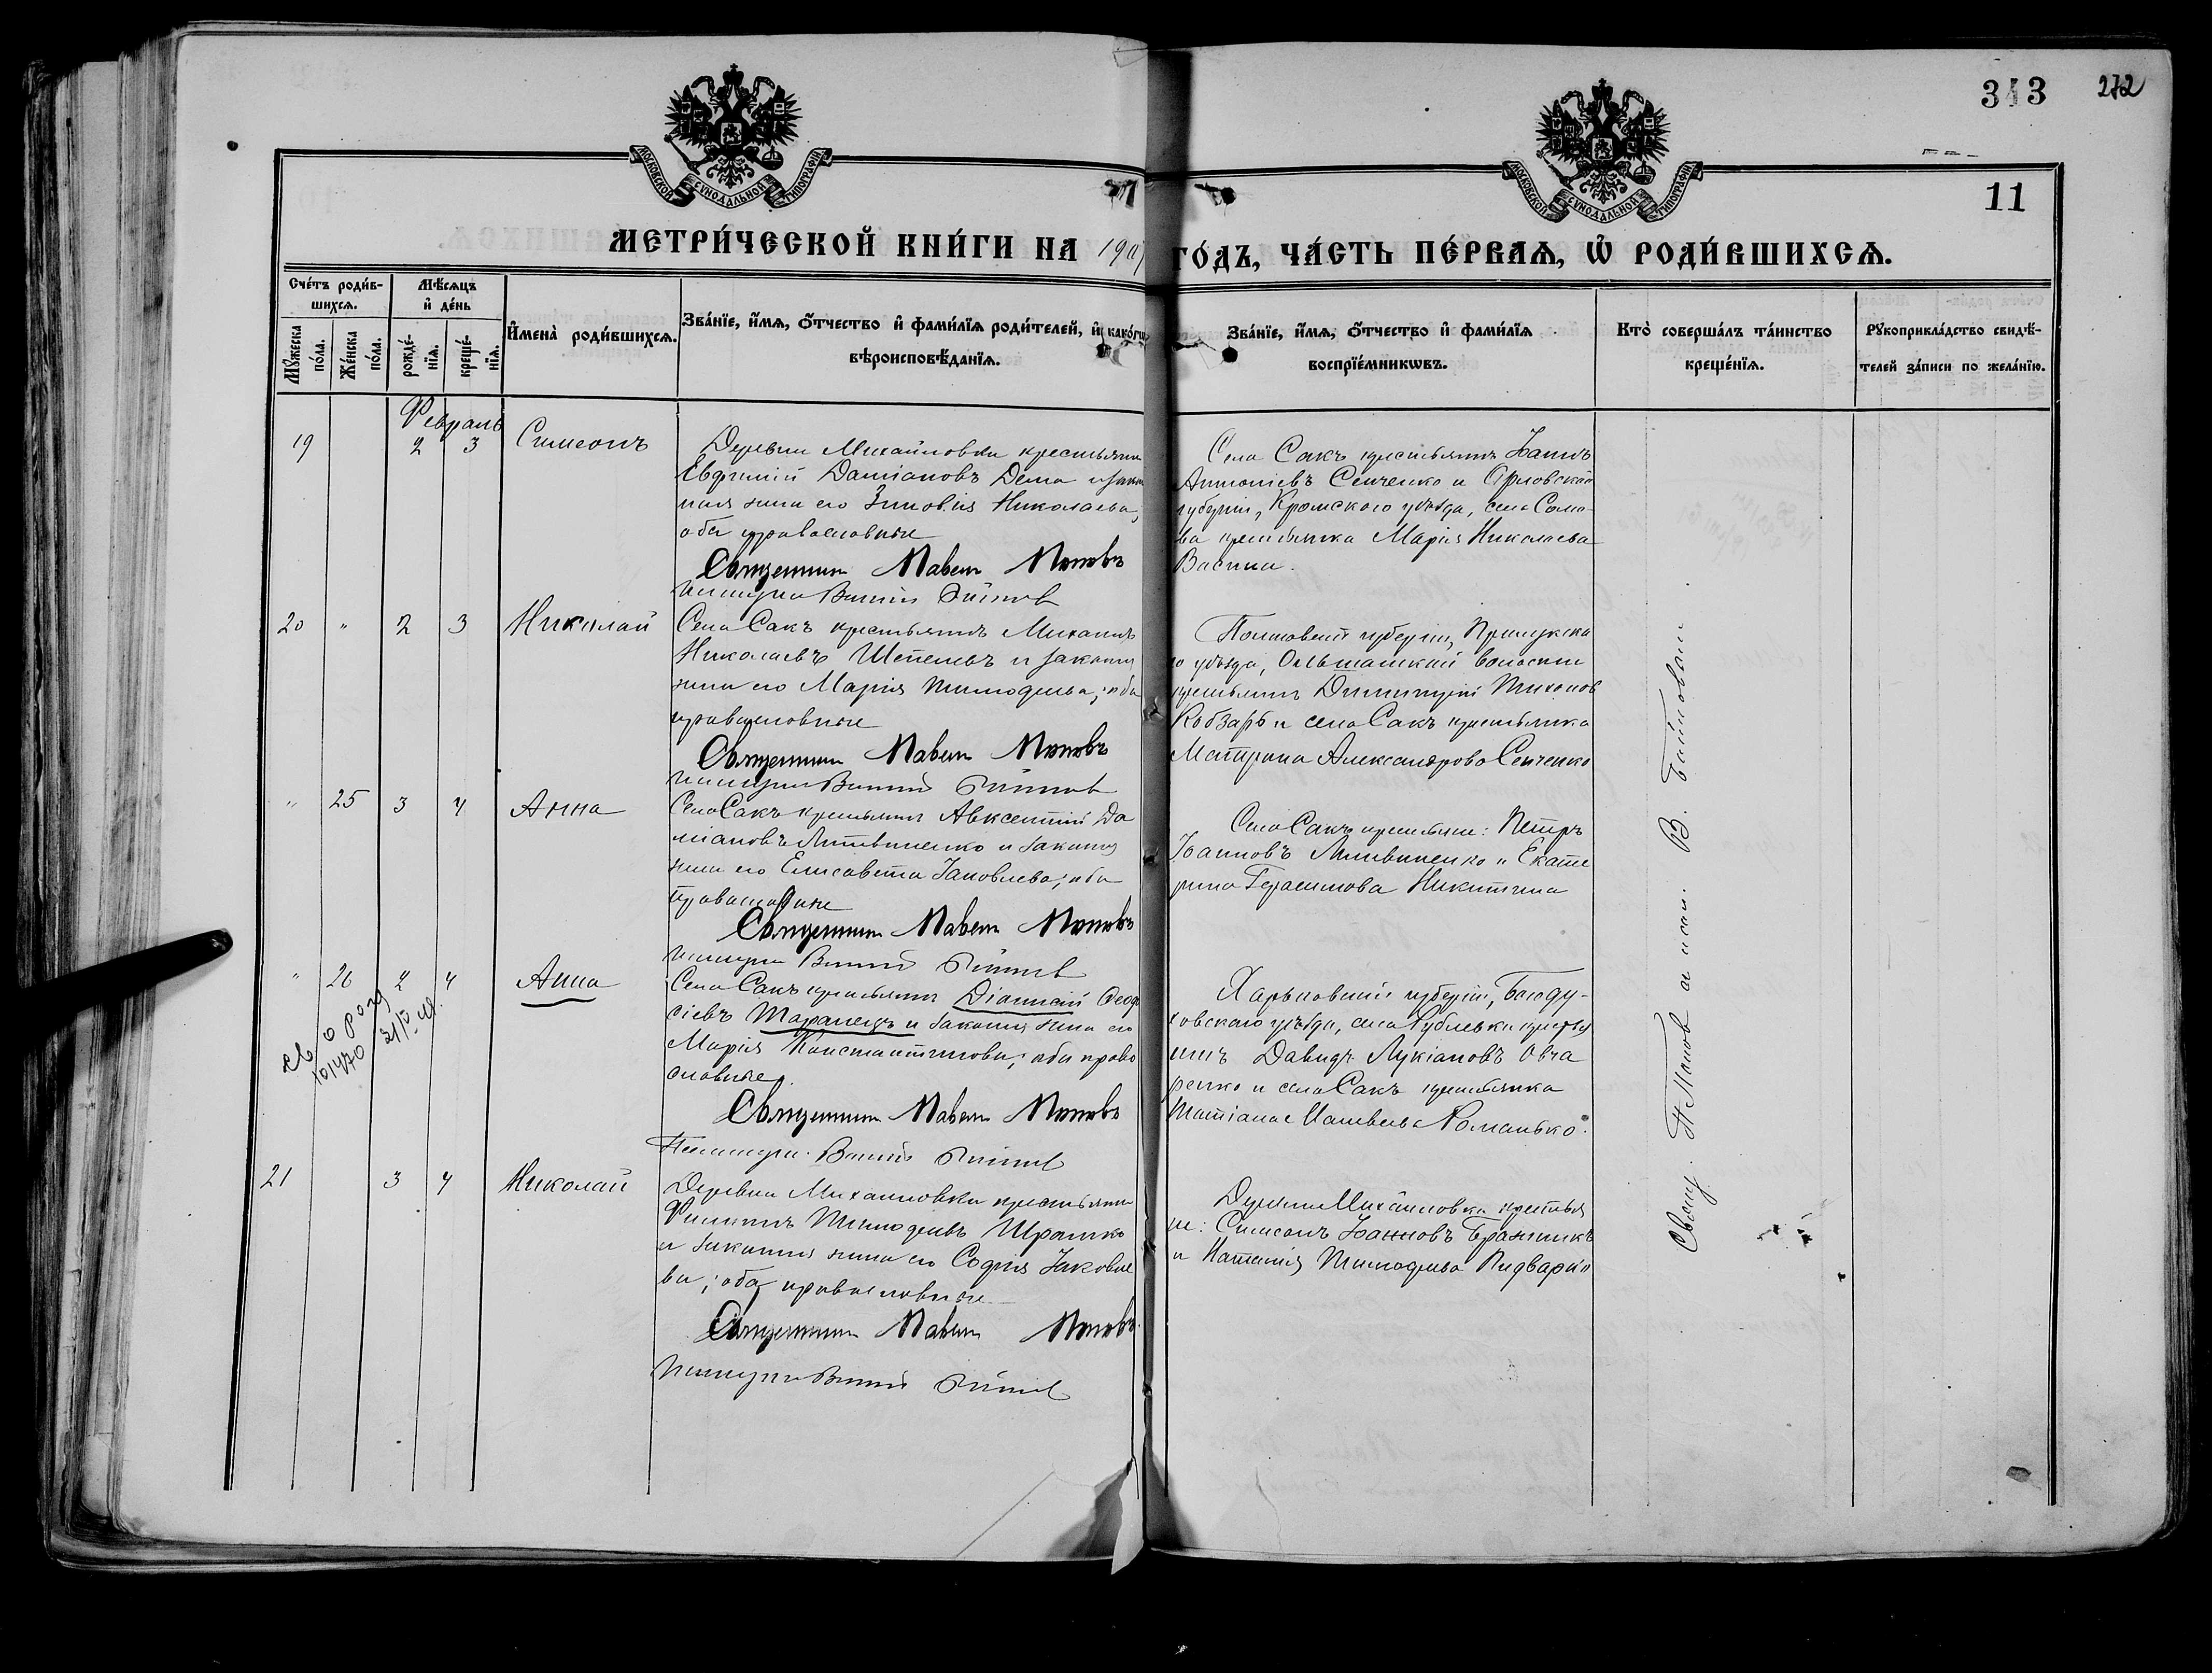 343 272
МОСКОВСКОЙ СѴНОДАЛЬНОЙ ТИПОГРАФІИ
МОСКОВСКОЙ СѴНОДАЛЬНОЙ ТИПОГРАФІИ
11
МЕТРИ́ЧЕСКОЙ КНИ́ГИ НА 190
ГО́ДЪ, ЧА́СТЬ ПЕ́РВАЯ, Ѡ҆ РОДИ́ВШИХСѦ.
Сче́тъ роди́в-
шихсѧ.
Мꙋ́жеска по́ла.
Же́нска по́ла.
Мѣ́сѧцъ
и҆ де́нь
рожде́-
нїѧ.
креще́-
нїѧ.
И҆мена̀ роди́вшихсѧ.
Зва́нїе, и҆́мѧ, ѻ҆́тчество и҆ фами́лїѧ роди́телей, и҆ како́гѡ
вѣроисповѣ́данїѧ.
Зва́нїе, и҆́мѧ, ѻ҆́тчество и҆ фами́лїѧ
воспрїе́мникѡвъ.
Кто̀ соверша́лъ та́инство
креще́нїѧ.
Рꙋкоприкла́дство свидѣ́-
телей за́писи по жела́нїю.
Февраль
19 2 3 Симеонъ
Деревни Михайловки крестьянин
Евфимій Даміановъ Дема и закон
ная жена его Зиновія Николаева,
оба православные
Священник Павел Поповъ
Села Сакъ крестьянинъ Іоаннъ
Антоніевъ Сенченко и Орловской
губерніи, Кромского уѣзда, села Сомо-
ва крестьянка Марія Николаева
Васина.
20 " 2 3 Николай
Села Сакъ крестьянинъ Михаилъ
Николаевъ Шепелевъ и законная
жена его Марія Тимофеева; оба
православные
Священник Павел Поповъ
Полтавской губерніи, Прилукска
го уѣзда, Ольшанской волости
крестьянинъ Димитрій Тихонов
Кобзарь и села Сакъ крестьянка
Матрона Александрова Сенченко
" 25 3 4 Анна
Села Сакъ крестьянин Авксентій Да
міановъ Литвиненко и законная
жена его Елисавета Іаковлева; оба
православные
Священник Павел Поповъ
Села Сакъ крестьяне: Петръ
Іоанновъ Литвиненко и Екате
рина Герасимова Никитина
" 26 2 4 Анна
Села Сакъ крестьянин Діонисій Феодо
сіевъ Таранецъ и законная жена его
Марія Константинова; оба право
славные.
Священник Павел Поповъ
Харьковской губерніи, Богоду-
ховскаго уѣзда, села Рублевки крестья
нинъ Давидъ Лукіановъ Овча
ренко и села Сакъ крестьянка
Татіана Романько.
21 3 4 Николай
Деревни Михайловки крестьянин
Филиппъ Тимофеевъ
и законная жена его Софія Іаковле
ва; оба православные
Священник Павел Поповъ
Деревни Михайловки крестья
не: Симеонъ Іоанновъ Бражникъ
и Наталія Тимофеева
Свящ. П Попов и псал. В.